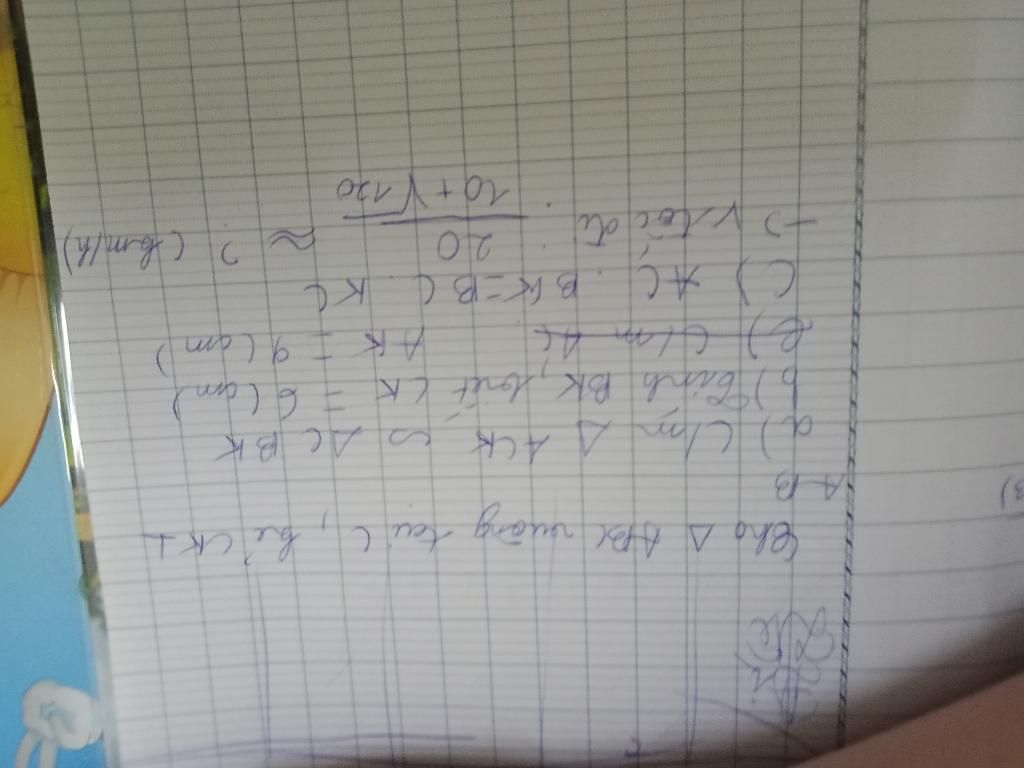 Cho Δ ABC vuông tại C, kẻ CK ⊥
AB
a) C/m Δ ACK ∽ Δ CBK
b) Tính BK, biết CK = 6 (cm)
AK = 9 (cm)
c) AC . BK = BC . KC
→ V tối đi : 20 / (10 + √120) ≈ ? (km/h)